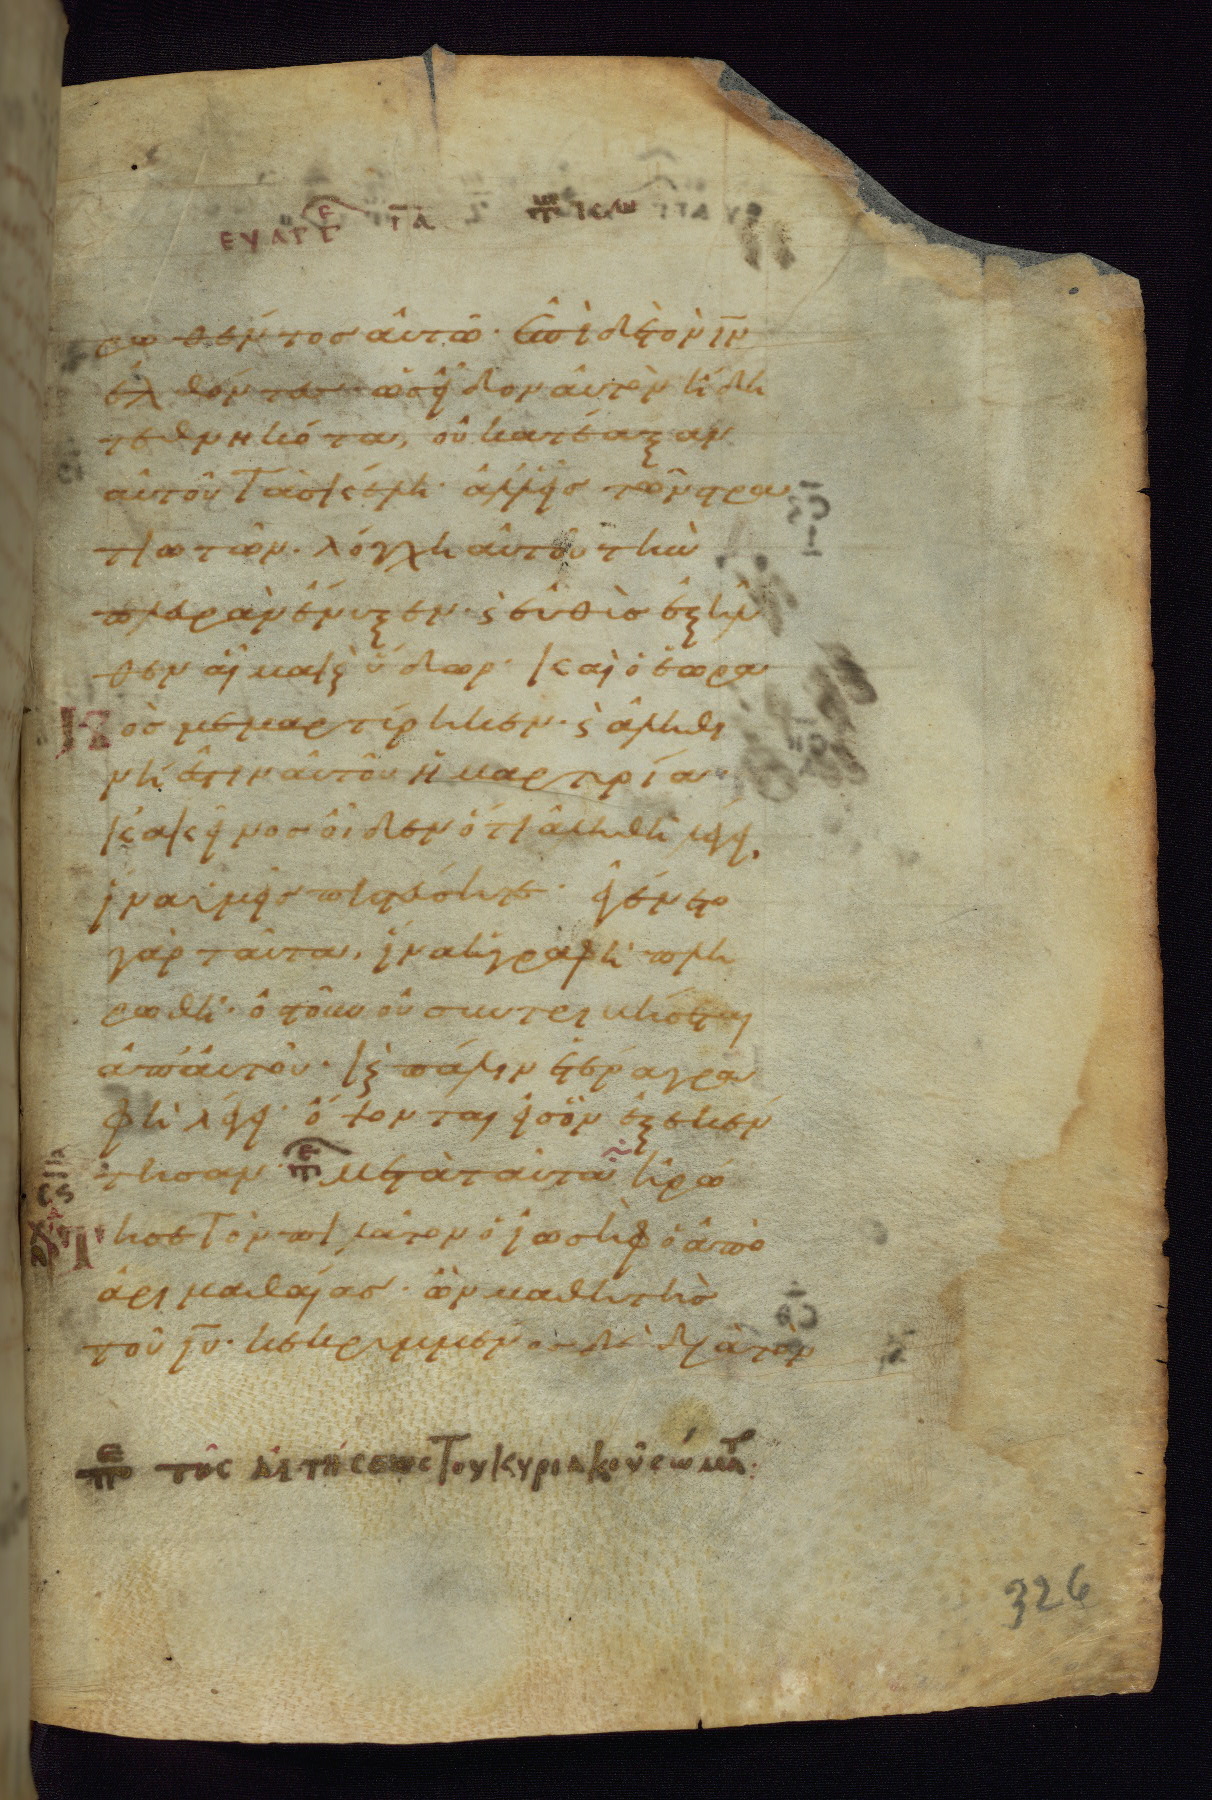 ΕΥΑΓΓ ΙΑ
ρωθέντος αὐτῶ· ἐπὶ δὲ τὸν ἰν
ἐλθόντες ὡς εἶδον αὐτὸν ἤδη
τεθνηκότα, οὐ κατέαξαν
αὐτοῦ τὰ σκέλη· ἀλλ' εἷς τῶν στρα
τιωτῶν· λόγχη αὐτοῦ τὴν
πλευρὰν ἔνυξεν· ϗ εὐθὺς ἐξῆλ
θεν αἷμα ϗ ὕδωρ· καὶ ὁ ἑωρα
ὸς μεμαρτίρηκεν· ϗ ἀληθι
νὴ ἐστιν αὐτοῦ ἡ μαρτυρία
κακεῖνος οἶδεν ὅτι ἀληθῆ λέγει,
ἵνα ὑμεῖς πιστεύσητε· ἐγένετο
γὰρ ταῦτα, ἵνα ἡ γραφὴ πλη
ρωθῆ· ὀστοῦν οὐ συντριβήσεται
ἀπ' αὐτοῦ· κ πάλιν ἑτέρα γρα
φὴ λέγει· ὄψονται εἰς ὃν ἐξεκέν
τησαν· Μετὰ ταῦτα ἠρώ
τησε τὸν πιλάτον ὁ ἰωσὴφ ὁ ἀπὸ
ἀριμαθαίας· ὢν μαθητὴς
τοῦ ἰυ· κεκρυμμένος δὲ διὰ τὸν
τῆς αἰτήσεως τοῦ κυριακοῦ σώματ
326